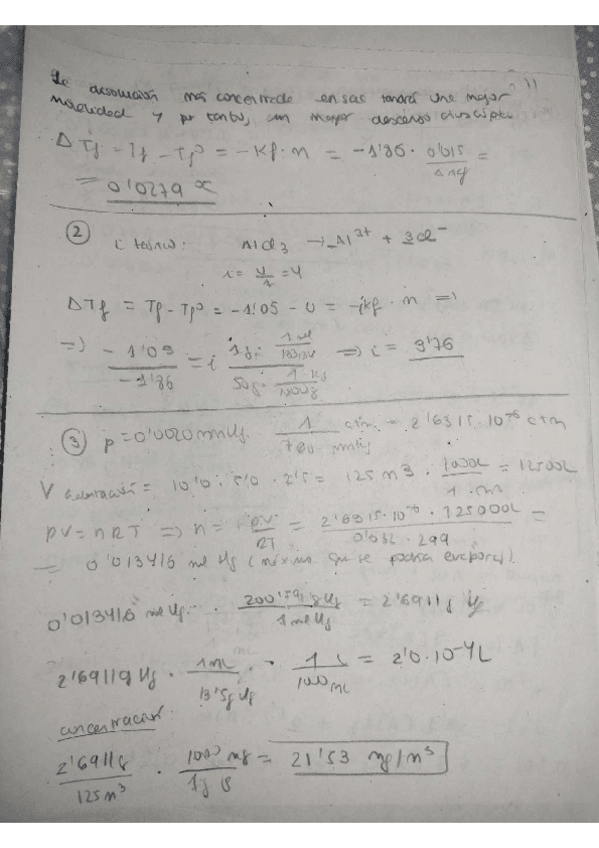 La disolución más concentrada en sac tendrá una mayor
molalidad y por tanto, un mayor descenso crioscópico
Δ Tf = Tf - Tfº = -Kf · m = -1'86 · 0'015 / 1 kg =
= 0'0279 ºC
② i teórico: AlCl3 → Al3+ + 3Cl-
i = 4/1 = 4
ΔTf = Tf - Tfº = -1'05 - 0 = -iKf · m ⇒
⇒ -1'05 / -1'86 = i 1g · 1 mol / 50g · 1 kg / 1000g ⇒ i = 3'76
③ p = 0'0020 mmHg · 1 atm / 760 mmHg = 2'6315·10-6 atm
V = 10'0 · 5'0 · 2'5 = 125 m3 · 1000L / 1 m3 =
PV = nRT ⇒ n = PV / RT = 2'6315·10-6 · 125000L / 0'082 · 299 =
= 0'013416 mol Hg (máximo que se podría evaporar).
0'013416 mol Hg · 200'59 g Hg / 1 mol Hg = 2'6911 g Hg
2'6911g Hg · 1 mL / 13'5g Hg · 1 L / 1000 mL = 2'0·10-4 L
concentración:
2'6911g / 125 m3 · 1000 mg / 1g = 21'53 mg/m3